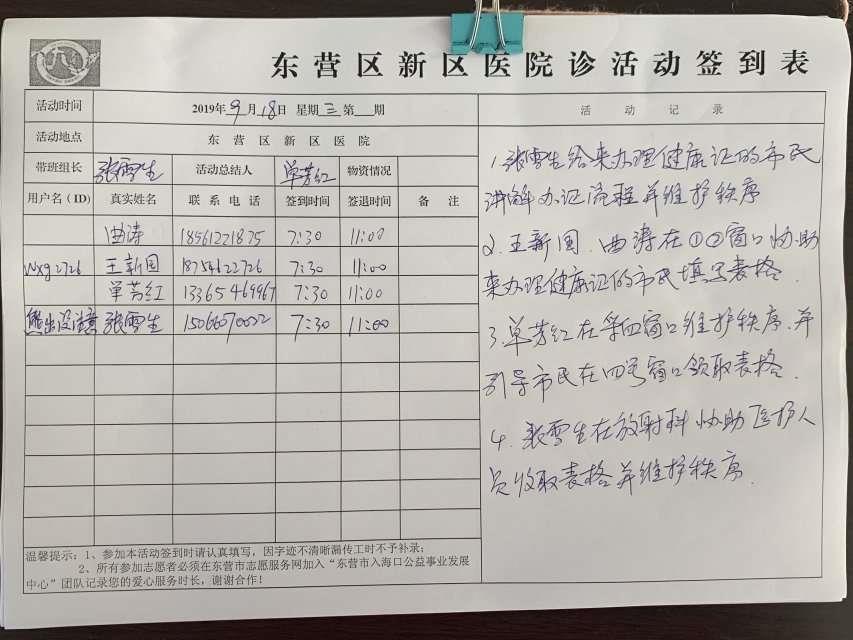 东营区新区医院诊活动签到表
活动时间 2019年9月18日 星期三第 期
活动地点 东营区新区医院
带班组长 张雪生 活动总结人 单芳红 物资情况
用户名(ID) 真实姓名 联系电话 签到时间 签退时间 备注
曲涛 18561221875 7:30 11:00
wxg2726 王新国 18754622726 7:30 11:00
单芳红 13365469967 7:30 11:00
熊出没注意 张雪生 15066070022 7:30 11:00
温馨提示:1、参加本活动签到时请认真填写,因字迹不清晰漏传工时不予补录;
2、所有参加志愿者必须在东营市志愿服务网加入“东营市入海口公益事业发展
中心”团队记录您的爱心服务时长,谢谢合作!
活动记录
1.张雪生给来办理健康证的市民
讲解办证流程并维护秩序
2.王新国、曲涛在①②窗口协助
来办理健康证的市民填写表格.
3.单芳红在第四窗口维护秩序.并
引导市民在四号窗口领取表格.
4.张雪生在放射科协助医护人
员收取表格并维护秩序.